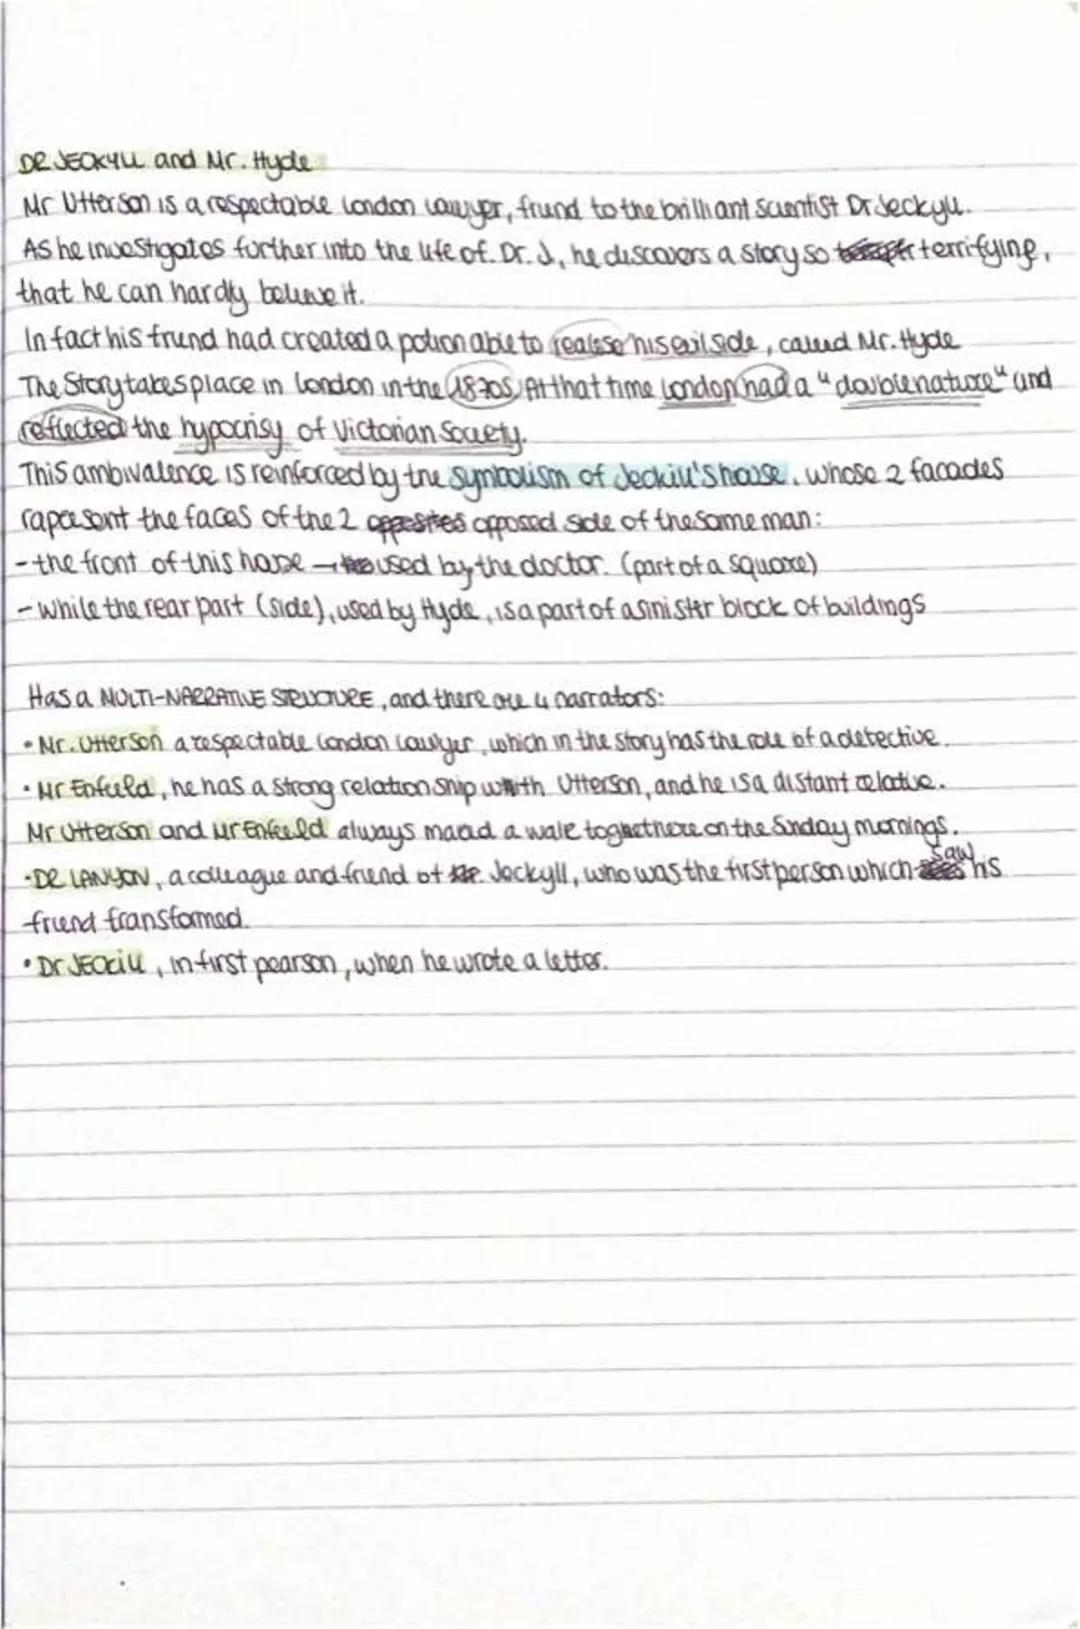 DR JECKYLL and Mr. Hyde
Mr Utterson is a respectable London lawyer, friend to the brilliant scientist Dr Jeckyll.
As he investigates further into the life of Dr. J, he discovers a story so terrifying,
that he can hardly believe it.
In fact his friend had created a potion able to realese his evil side, called Mr. Hyde
The Story takes place in London in the 1870s. At that time London had a "double nature" and
reflected the hypocrisy of Victorian Society.
This ambivalence is reinforced by the symbolism of Jeckill's house, whose 2 facades
rapresent the faces of the 2 opposites opposed side of the same man:
- the front of this house → used by the doctor. (part of a square)
- while the rear part (side), used by Hyde, is a part of a sinister block of buildings
Has a MULTI-NARRATIVE STRUCTURE, and there are 4 narrators:
• Mr. Utterson a respectable London lawyer, which in the story has the role of a detective.
• Mr Enfield, he has a strong relation ship with Utterson, and he is a distant relative.
Mr Utterson and Mr Enfield always a walk on the Sunday mornings.
• DR LANYON, a colleague and friend of Jeckyll, who was the first person which saw his
friend transformed.
• Dr JECKILL, in first pearson, when he wrote a letter.